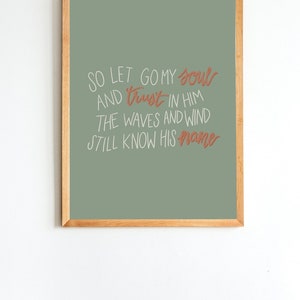 SO LET GO MY soul
AND trust IN HIM
THE WAVES AND WIND
STILL KNOW HIS name